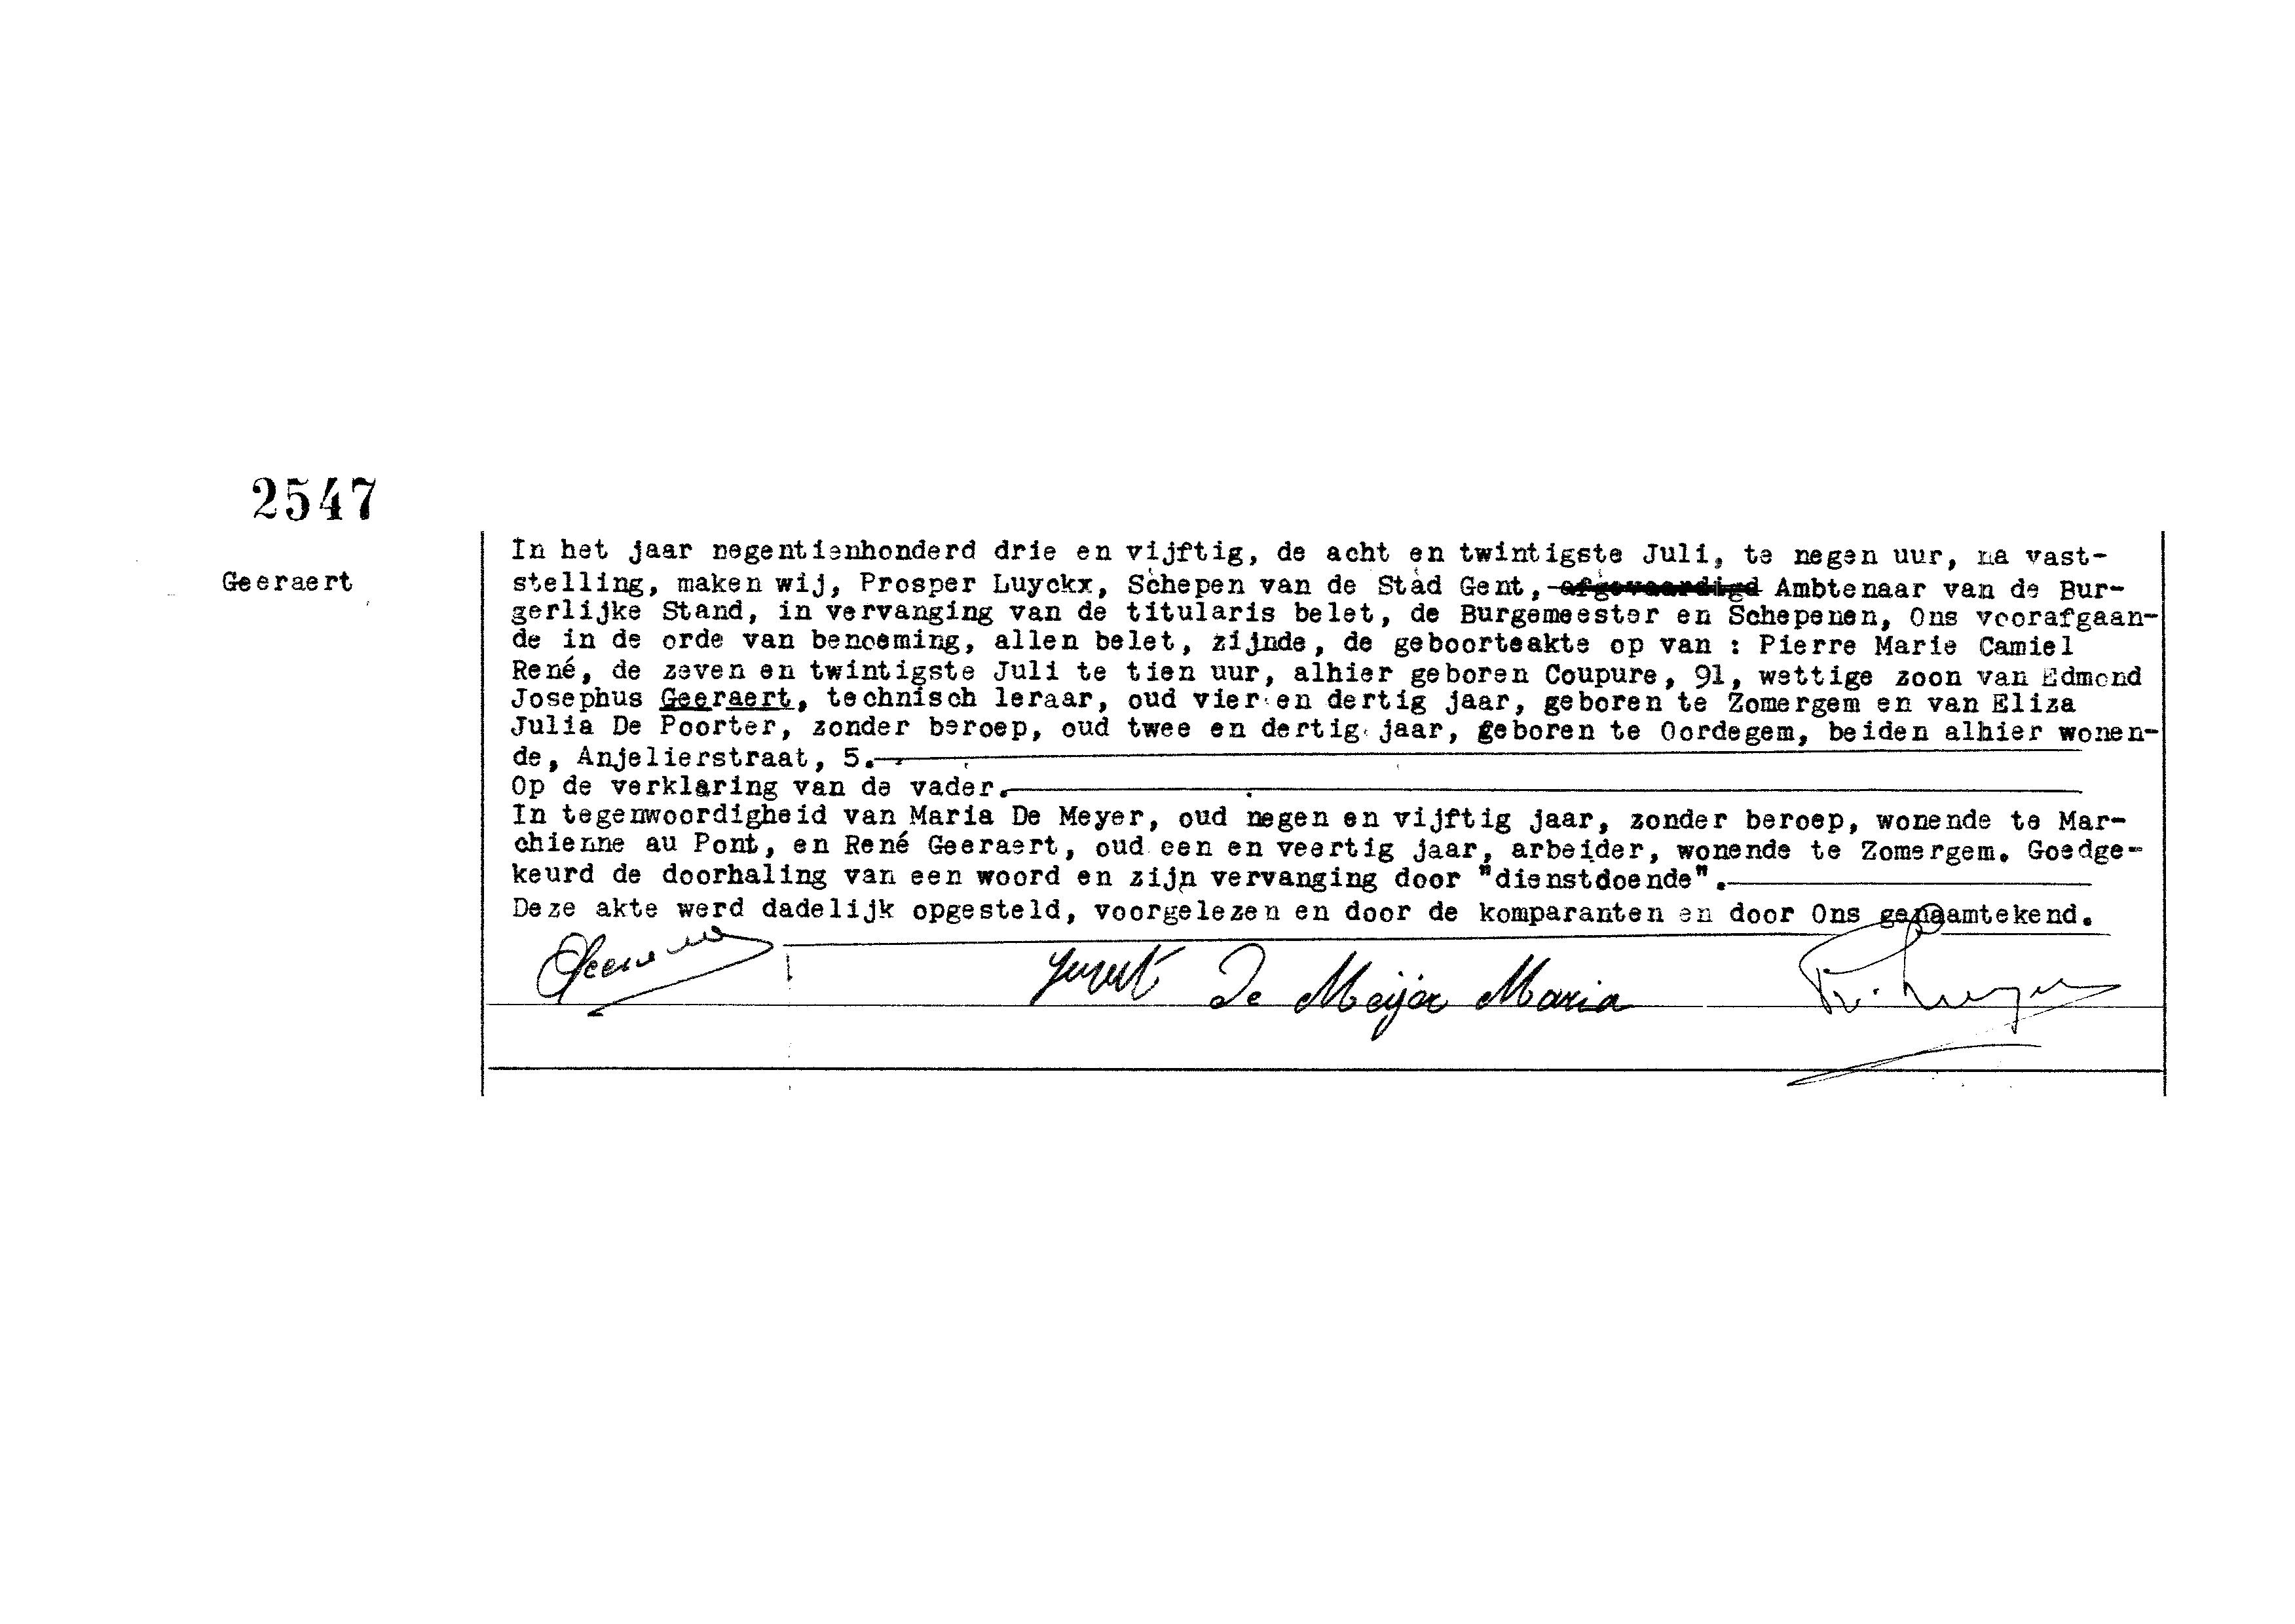 2547
Geeraert
In het jaar negentienhonderd drie en vijftig, de acht en twintigste Juli, te negen uur, na vast-
stelling, maken wij, Prosper Luyckx, Schepen van de Stad Gent, afgevaardigd Ambtenaar van de Bur-
gerlijke Stand, in vervanging van de titularis belet, de Burgemeester en Schepenen, Ons voorafgaan-
de in de orde van benoeming, allen belet, zijnde, de geboorteakte op van : Pierre Marie Camiel
René, de zeven en twintigste Juli te tien uur, alhier geboren Coupure, 91, wettige zoon van Edmond
Josephus Geeraert, technisch leraar, oud vier en dertig jaar, geboren te Zomergem en van Eliza
Julia De Poorter, zonder beroep, oud twee en dertig jaar, geboren te Oordegem, beiden alhier wonen-
de, Anjelierstraat, 5.
Op de verklaring van de vader.
In tegenwoordigheid van Maria De Meyer, oud negen en vijftig jaar, zonder beroep, wonende te Mar-
chienne au Pont, en René Geeraert, oud een en veertig jaar, arbeider, wonende te Zomergem. Goedge-
keurd de doorhaling van een woord en zijn vervanging door "dienstdoende".
Deze akte werd dadelijk opgesteld, voorgelezen en door de komparanten en door Ons genaamtekend.
De Meijer Maria